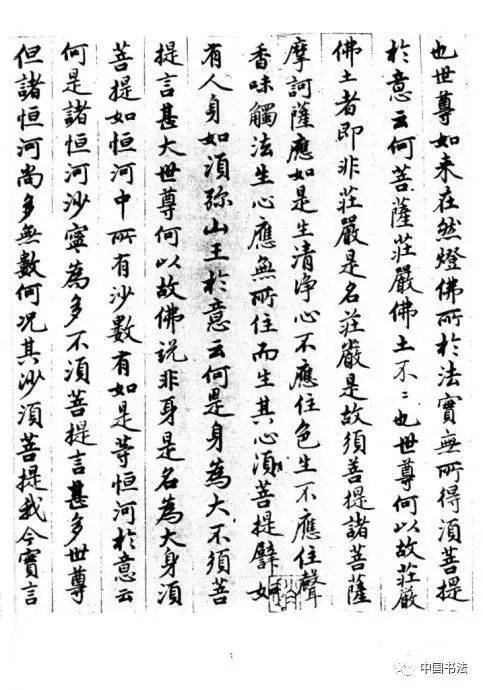 也世尊如来在然燈佛所於法實無所得須菩提
於意云何菩薩莊嚴佛土不〻也世尊何以故莊嚴
佛土者即非莊嚴是名莊嚴是故須菩提諸菩薩
摩訶薩應如是生清淨心不應住色生不應住聲
香味觸法生心應無所住而生其心須菩提譬如
有人身如須弥山王於意云何是身為大不須菩
提言甚大世尊何以故佛説非身是名為大身須
菩提如恒河中所有沙數有如是等恒河於意云
何是諸恒河沙寧為多不須菩提言甚多世尊
但諸恒河尚多無數何况其沙須菩提我今實言
中国书法